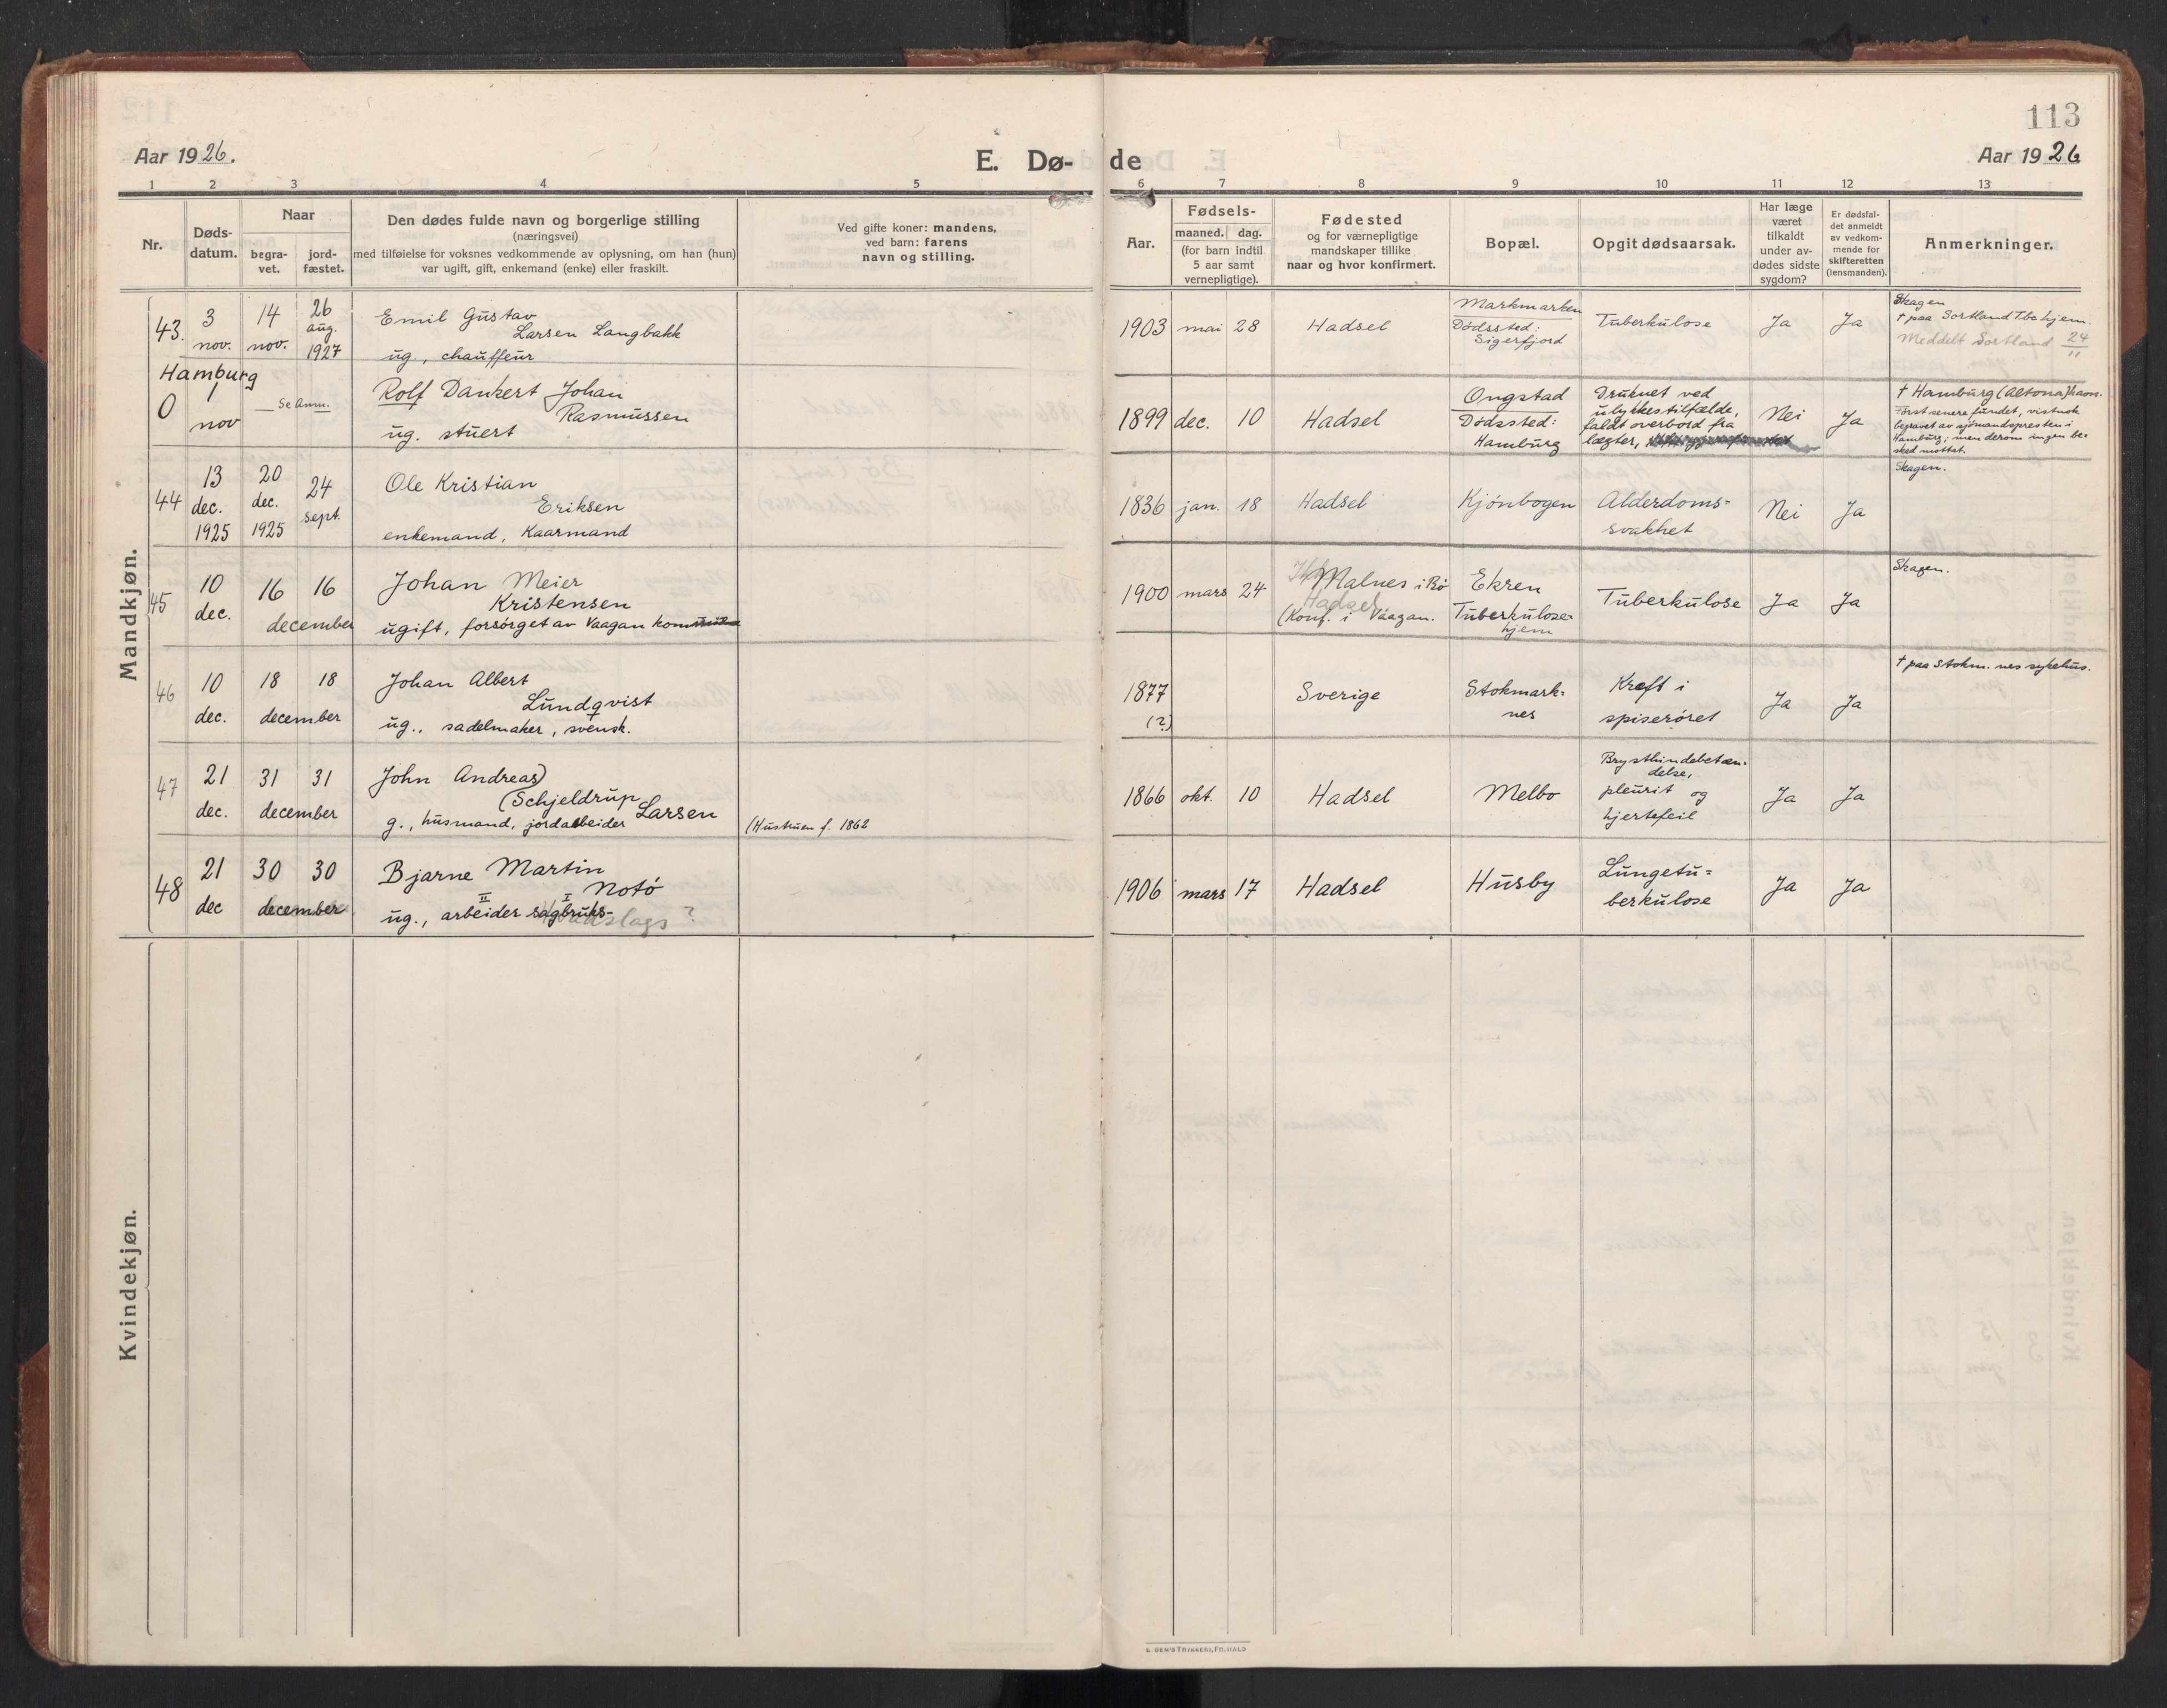 113
Aar 1926.
E. Dø-
de
Aar 1926
1 2 3 4 5
6 7 8 9 10 11 12 13
Nr.
Døds-
datum.
Naar
begra-
vet.
jord-
fæstet.
Den dødes fulde navn og borgerlige stilling
(næringsvei)
med tilføielse for voksnes vedkommende av oplysning, om han (hun)
var ugift, gift, enkemand (enke) eller fraskilt.
Ved gifte koner: mandens,
ved barn: farens
navn og stilling.
Aar.
Fødsels-
maaned. dag.
(for barn indtil
5 aar samt
vernepligtige).
Fødested
og for værnepligtige
mandskaper tillike
naar og hvor konfirmert.
Bopæl.
Opgit dødsaarsak.
Har læge
været
tilkaldt
under av-
dødes sidste
sygdom?
Er dødsfal-
det anmeldt
av vedkom-
mende for
skifteretten
(lensmanden).
Anmerkninger.
Mandkjøn.
43.
3
nov.
14
nov.
26
aug.
1927
Emil Gustav
Larsen Langbakk
ug., chauffeur
1903 mai 28
Hadsel
Markmarken
Dødssted:
Sigerfjord
Tuberkulose
Ja
Ja
Skagen
† paa Sortland Tbc hjem.
Meddelt Sortland 24/11
Hamburg
0
1
nov
Se Anm.
Rolf Dankert Johan
Rasmussen
ug. stuert
1899 dec. 10
Hadsel
Ongstad
Dødssted:
Hamburg
Druknet ved
ulykkestilfælde,
faldt overbord fra
lægter,
Nei
Ja
† Hamburg (Altona) havn.
Først senere fundet, vistnok
begravet av sjømandspresten i
Hamburg; men derom ingen be-
sked mottat.
44
13
dec.
1925
20
dec.
1925
24
sept.
Ole Kristian
Eriksen
enkemand, Kaarmand
1836 jan. 18
Hadsel
Kjønbogen
Alderdoms-
svakhet
Nei
Ja
Skagen.
45
10
dec.
16 16
december
Johan Meier
Kristensen
ugift, forsørget av Vaagan kommune
1900 mars 24
Malnes i Bø
Hadsel
(Konf. i Vaagan.
Ekren
Tuberkulose-
hjem
Tuberkulose
Ja
Ja
Skagen.
46
10
dec.
18 18
december
Johan Albert
Lundqvist
ug., sadelmaker, svensk.
1877
(?)
Sverige
Stokmark-
nes
Kreft i
spiserøret
Ja
Ja
† paa Stokm. nes sykehus.
47
21
dec.
31 31
december
John Andreas)
(Schjeldrup
Larsen
g., husmand, jordarbeider
(Hustruen f. 1862
1866 okt. 10
Hadsel
Melbo
Brysthindebetæn-
delse,
pleurit og
hjertefeil
Ja
Ja
48
21
dec
30 30
december
Bjarne Martin
Notø
II I
ug., arbeider sagbruks-
Hvadslags?
1906 mars 17
Hadsel
Husby
Lungetu-
berkulose
Ja
Ja
Kvindekjøn.